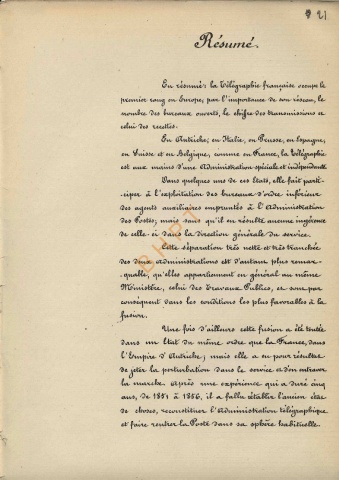 21
Résumé.
En résumé : la Télégraphie française occupe le
premier rang en Europe, par l'importance de son réseau, le
nombre des bureaux ouverts, le chiffre des transmissions et
celui des recettes.
En Autriche, en Italie, en Prusse, en Espagne,
en Suisse et en Belgique, comme en France, la Télégraphie
est aux mains d'une Administration spéciale et indépendante.
Dans quelques uns de ces États, elle fait parti-
ciper à l'exploitation des bureaux d'ordre inférieur
des agents auxiliaires empruntés à l'Administration
des Postes ; mais sans qu'il en résulte aucune ingérence
de celle ci dans la direction générale du service.
Cette séparation très nette et très tranchée
des deux administrations est d'autant plus remar-
quable, qu'elles appartiennent en général au même
Ministère, celui des Travaux Publics, et sont par
conséquent dans les conditions les plus favorables à la
fusion.
Une fois d'ailleurs cette fusion a été tentée
dans un État du même ordre que la France, dans
l'Empire d'Autriche ; mais elle a eu pour résultat
de jeter la perturbation dans le service et d'en entraver
la marche. Après une expérience qui a duré cinq
ans, de 1851 à 1856, il a fallu rétablir l'ancien état
de choses, reconstituer l'Administration télégraphique
et faire rentrer la Poste dans sa sphère habituelle.